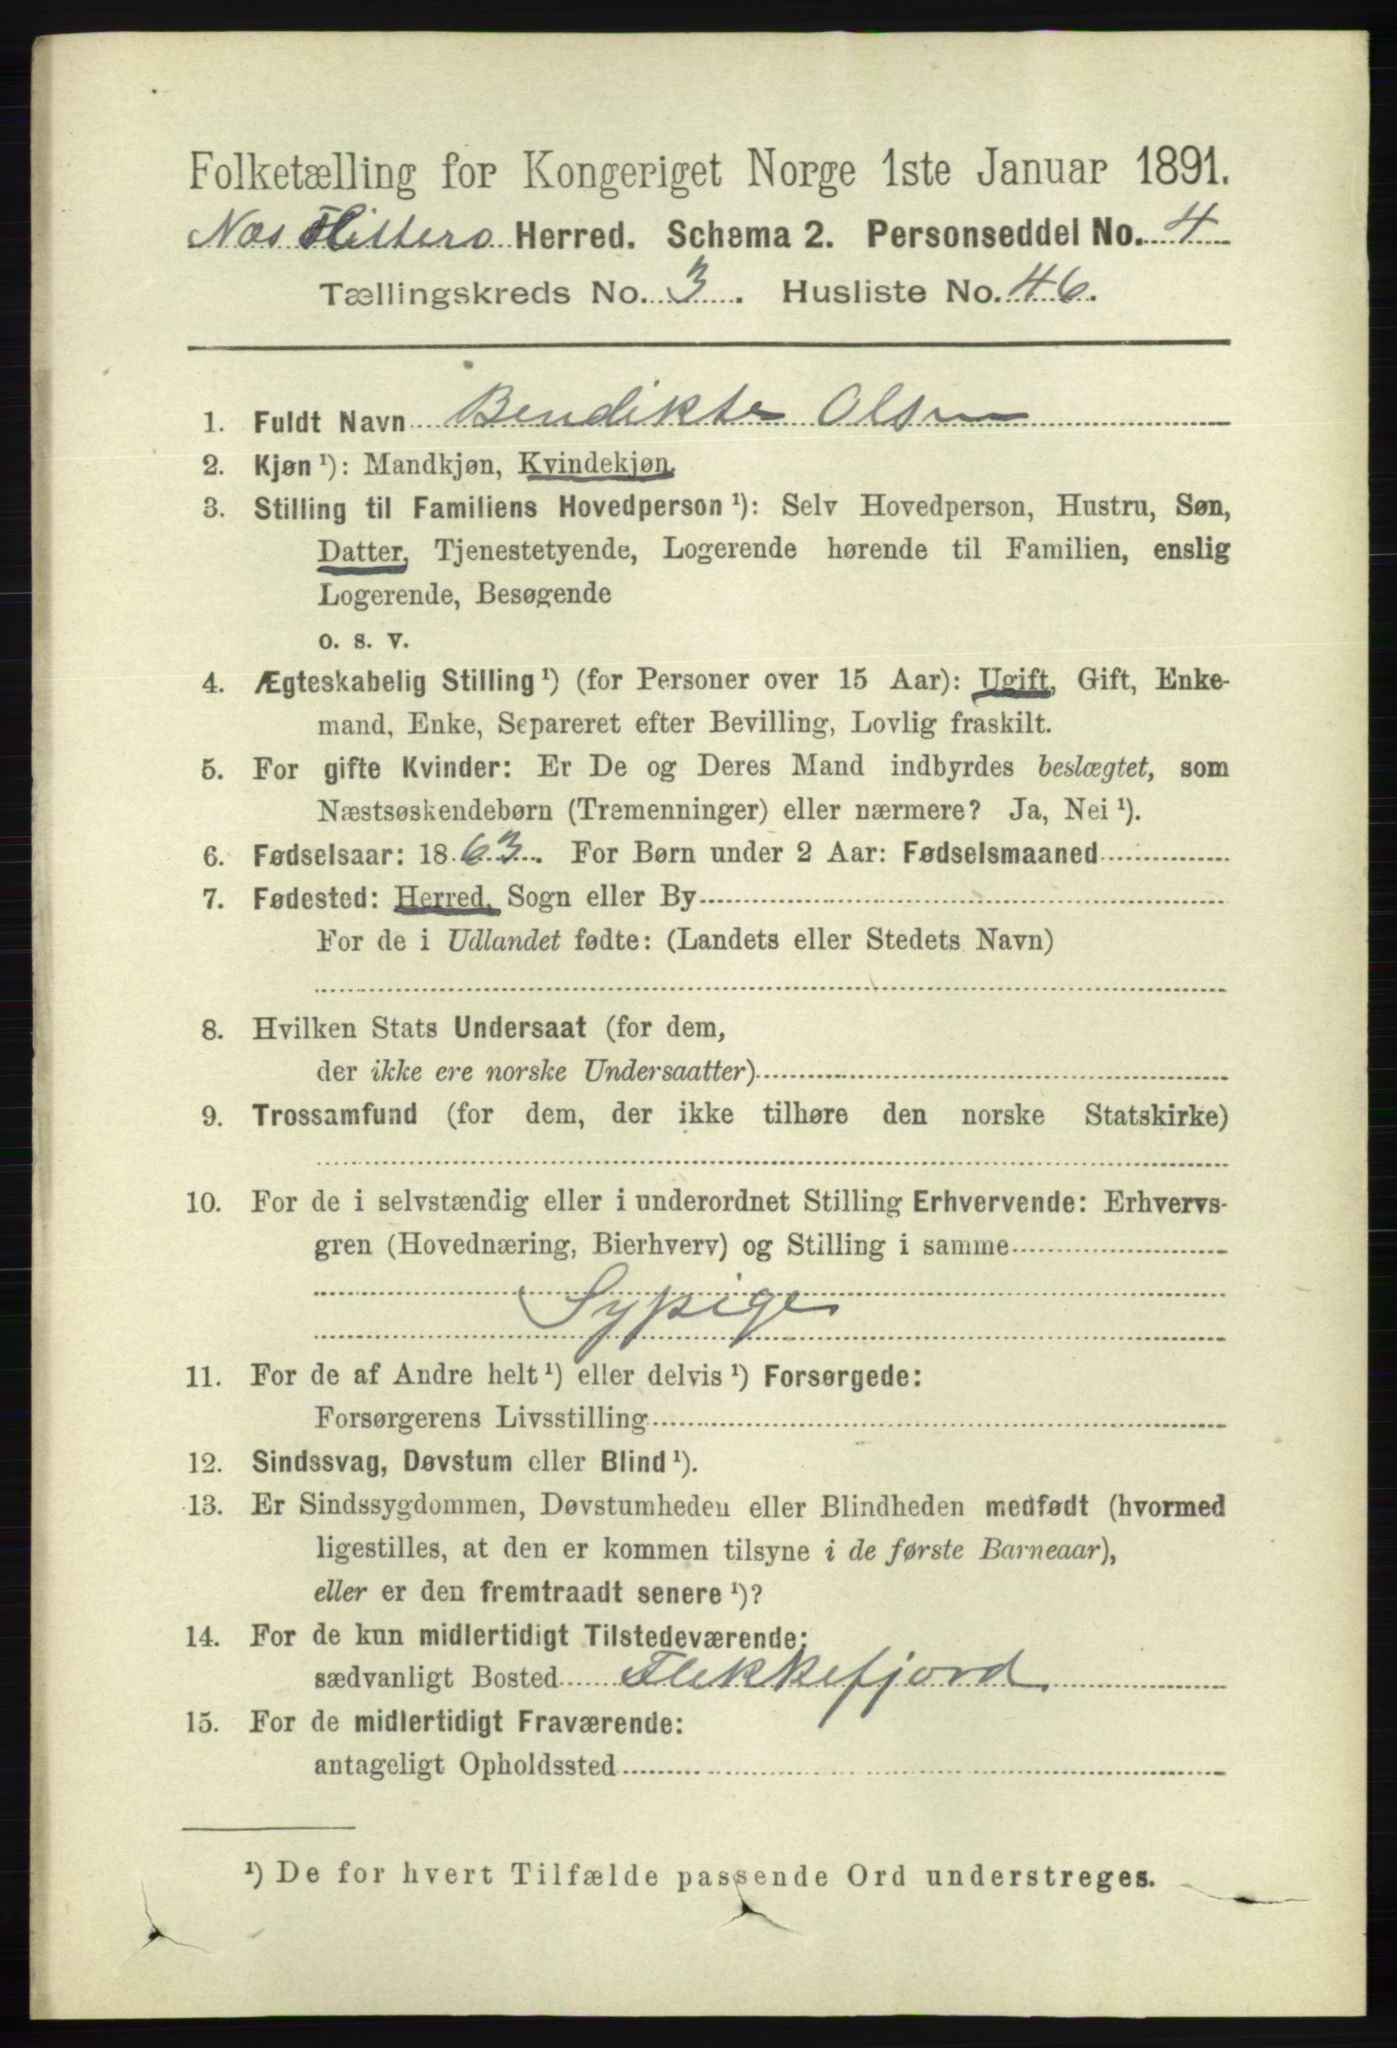 Folketælling for Kongeriget Norge 1ste Januar 1891.
Nes Hittero Herred. Schema 2. Personseddel No. 4
Tællingskreds No. 3. Husliste No. 46.
1. Fuldt Navn Bendikte Olsen
2. Kjøn ¹): Mandkjøn, Kvindekjøn.
3. Stilling til Familiens Hovedperson ¹): Selv Hovedperson, Hustru, Søn,
Datter, Tjenestetyende, Logerende hørende til Familien, enslig
Logerende, Besøgende
o. s. v.
4. Ægteskabelig Stilling ¹) (for Personer over 15 Aar): Ugift, Gift, Enke-
mand, Enke, Separeret efter Bevilling, Lovlig fraskilt.
5. For gifte Kvinder: Er De og Deres Mand indbyrdes beslægtet, som
Næstsøskendebørn (Tremenninger) eller nærmere? Ja, Nei ¹).
6. Fødselsaar: 1863. For Børn under 2 Aar: Fødselsmaaned
7. Fødested: Herred, Sogn eller By
For de i Udlandet fødte: (Landets eller Stedets Navn)
8. Hvilken Stats Undersaat (for dem,
der ikke ere norske Undersaatter)
9. Trossamfund (for dem, der ikke tilhøre den norske Statskirke)
10. For de i selvstændig eller i underordnet Stilling Erhvervende: Erhvervs-
gren (Hovednæring, Bierhverv) og Stilling i samme
Sypige
11. For de af Andre helt ¹) eller delvis ¹) Forsørgede:
Forsørgerens Livsstilling
12. Sindssvag, Døvstum eller Blind ¹).
13. Er Sindssygdommen, Døvstumheden eller Blindheden medfødt (hvormed
ligestilles, at den er kommen tilsyne i de første Barneaar),
eller er den fremtraadt senere ¹)?
14. For de kun midlertidigt Tilstedeværende:
sædvanligt Bosted Flekkefjord
15. For de midlertidigt Fraværende:
antageligt Opholdssted
¹) De for hvert Tilfælde passende Ord understreges.